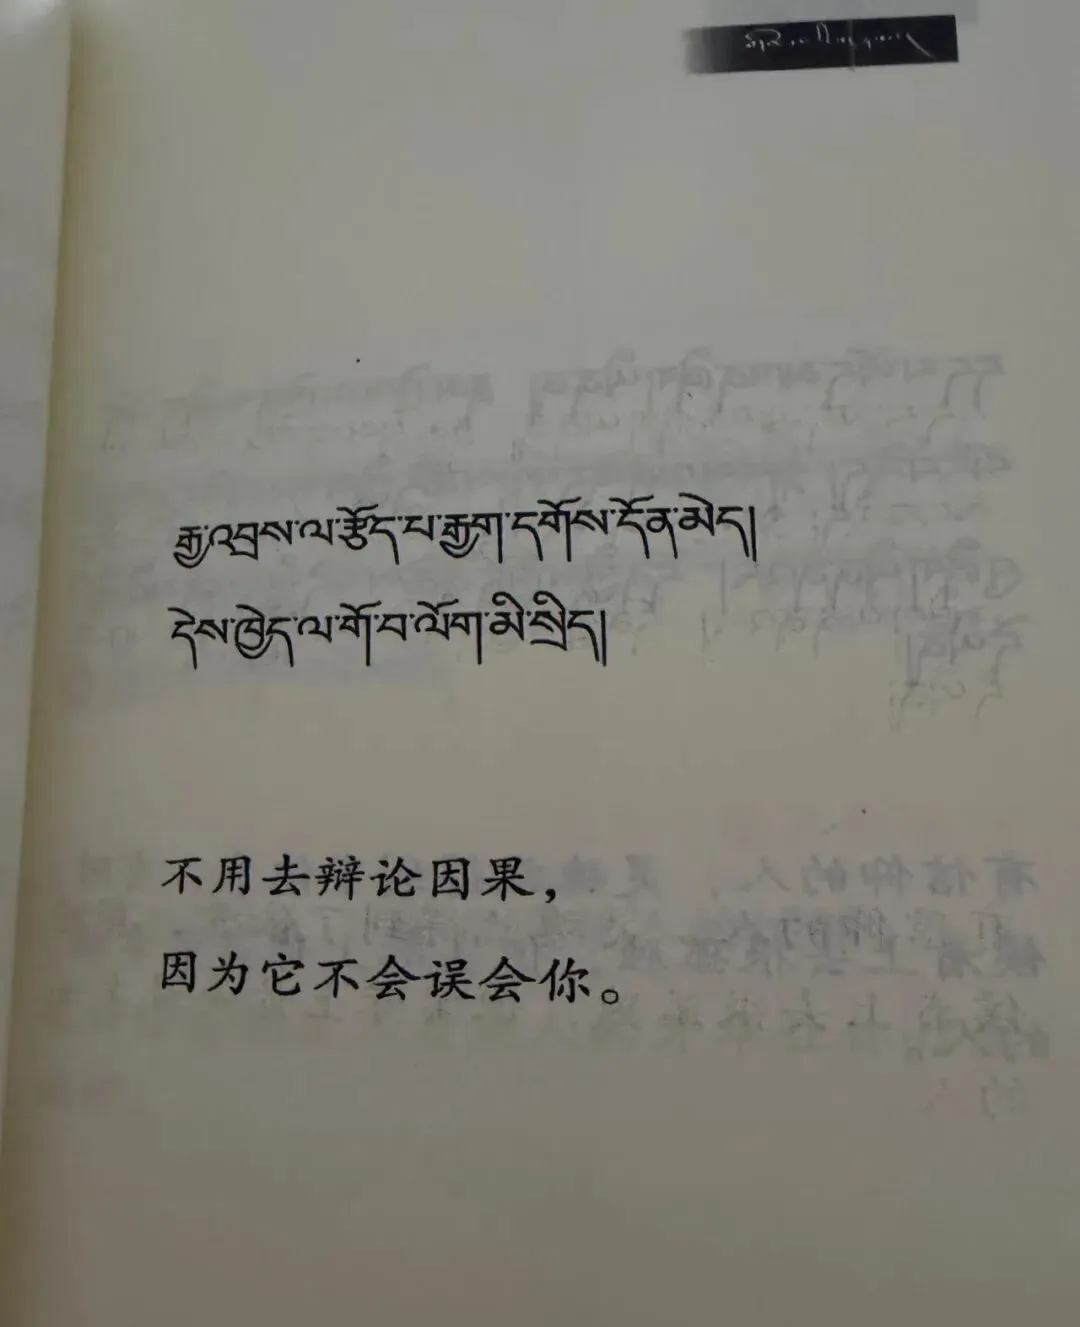 རྒྱ་འབྲས་ལ་རྩོད་པ་རྒྱག་དགོས་དོན་མེད།
དེས་ཁྱེད་ལ་གོ་བ་ལོག་མི་སྲིད།
不用去辩论因果，
因为它不会误会你。